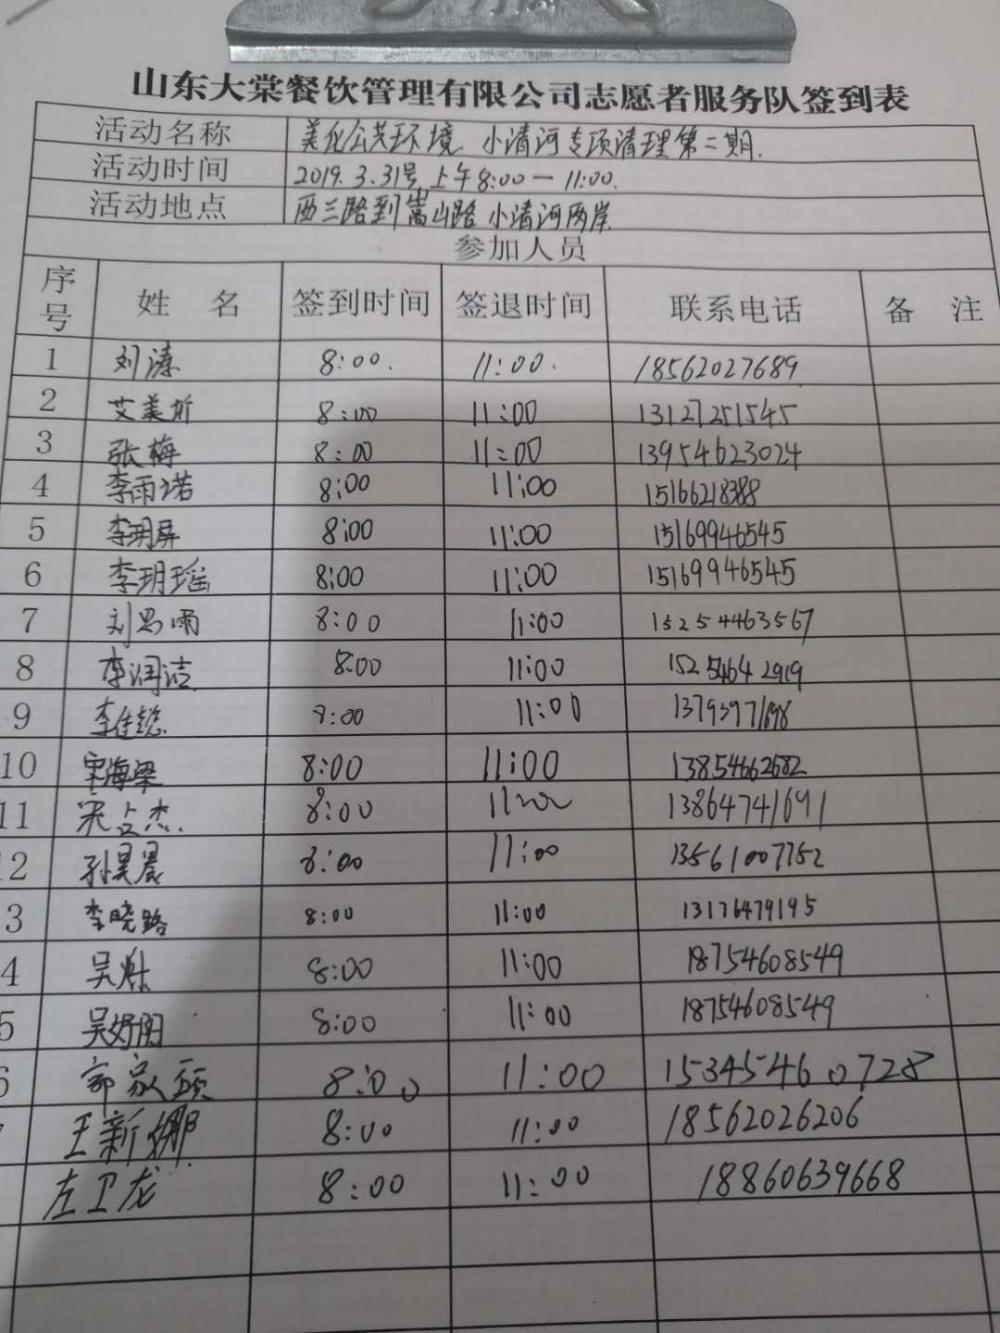 山东大棠餐饮管理有限公司志愿者服务队签到表
活动名称 美化公共环境 小清河专项清理第二期.
活动时间 2019.3.31号 上午8:00—11:00.
活动地点 西三路到嵩山路 小清河两岸
参加人员
序号 姓 名 签到时间 签退时间 联系电话 备 注
1 刘涛 8:00. 11:00. 18562027689
2 艾美析 8:00 11:00 13127251545
3 张梅 8:00 11:00 13954623024
4 李雨诺 8:00 11:00 15166218388
5 李玥屏 8:00 11:00 15169946545
6 李玥瑶 8:00 11:00 15169946545
7 刘思雨 8:00 11:00 15254463567
8 李润洁 8:00 11:00 15254642919
9 李佳懿 8:00 11:00 13793971698
10 宋海梁 8:00 11:00 13854662682
11 8:00 11:00 13864741691
2 孙昊晨 8:00 11:00 13561007752
3 李晓路 8:00 11:00 13176479195
4 8:00 11:00 18754608549
5 吴妤阳 8:00 11:00 18754608549
6 郭家硕 8:00 11:00 15345460728
王新娜 8:00 11:00 18562026206
左卫龙 8:00 11:00 18860639668